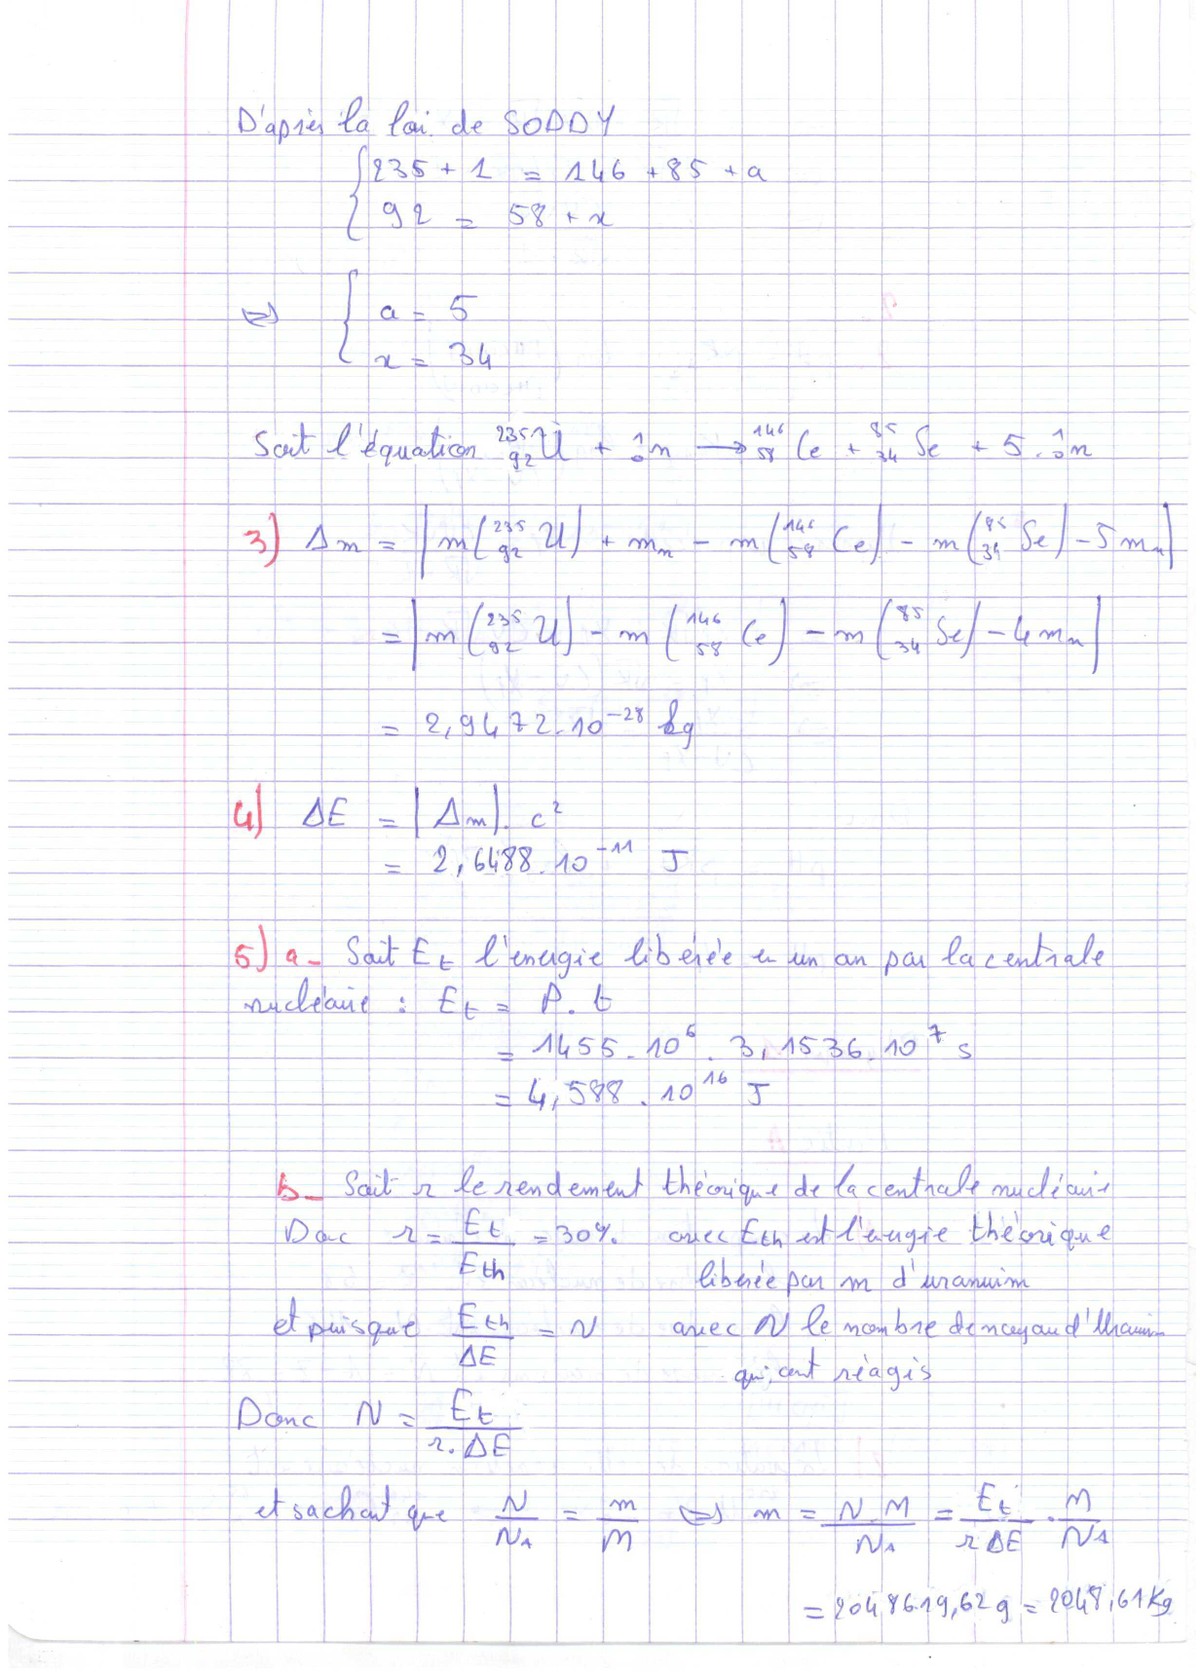 D'après la loi de SODDY
{ 235 + 1 = 146 + 85 + a
{ 92 = 58 + x
⇔ { a = 5
{ x = 34
Soit l'équation ²³⁵₉₂U + ¹₀n → ¹⁴⁶₅₈Ce + ⁸⁵₃₄Se + 5. ¹₀n
3) Δm = |m(²³⁵₉₂U) + mₙ - m(¹⁴⁶₅₈Ce) - m(⁸⁵₃₄Se) - 5mₙ|
= |m(²³⁵₉₂U) - m(¹⁴⁶₅₈Ce) - m(⁸⁵₃₄Se) - 4mₙ|
= 2,9472.10⁻²⁸ kg
4) ΔE = |Δm|. c²
= 2,6488.10⁻¹¹ J
5) a- Soit Et l'énergie libérée en un an par la centrale
nucléaire : Et = P. t
= 1455.10⁶. 3,1536.10⁷ s
= 4,588.10¹⁶ J
b- Soit r le rendement théorique de la centrale nucléaire
Donc r = Et/Eth = 30% avec Eth est l'énergie théorique
libérée par m d'uranuim
et puisque Eth/ΔE = N avec N le nombre de noyau d'Uranium
qui ont réagis
Donc N = Et/(r.ΔE)
et sachant que N/NA = m/M ⇔ m = N.M/NA = Et/(rΔE) . M/NA
= 2048619,62g = 2048,61Kg